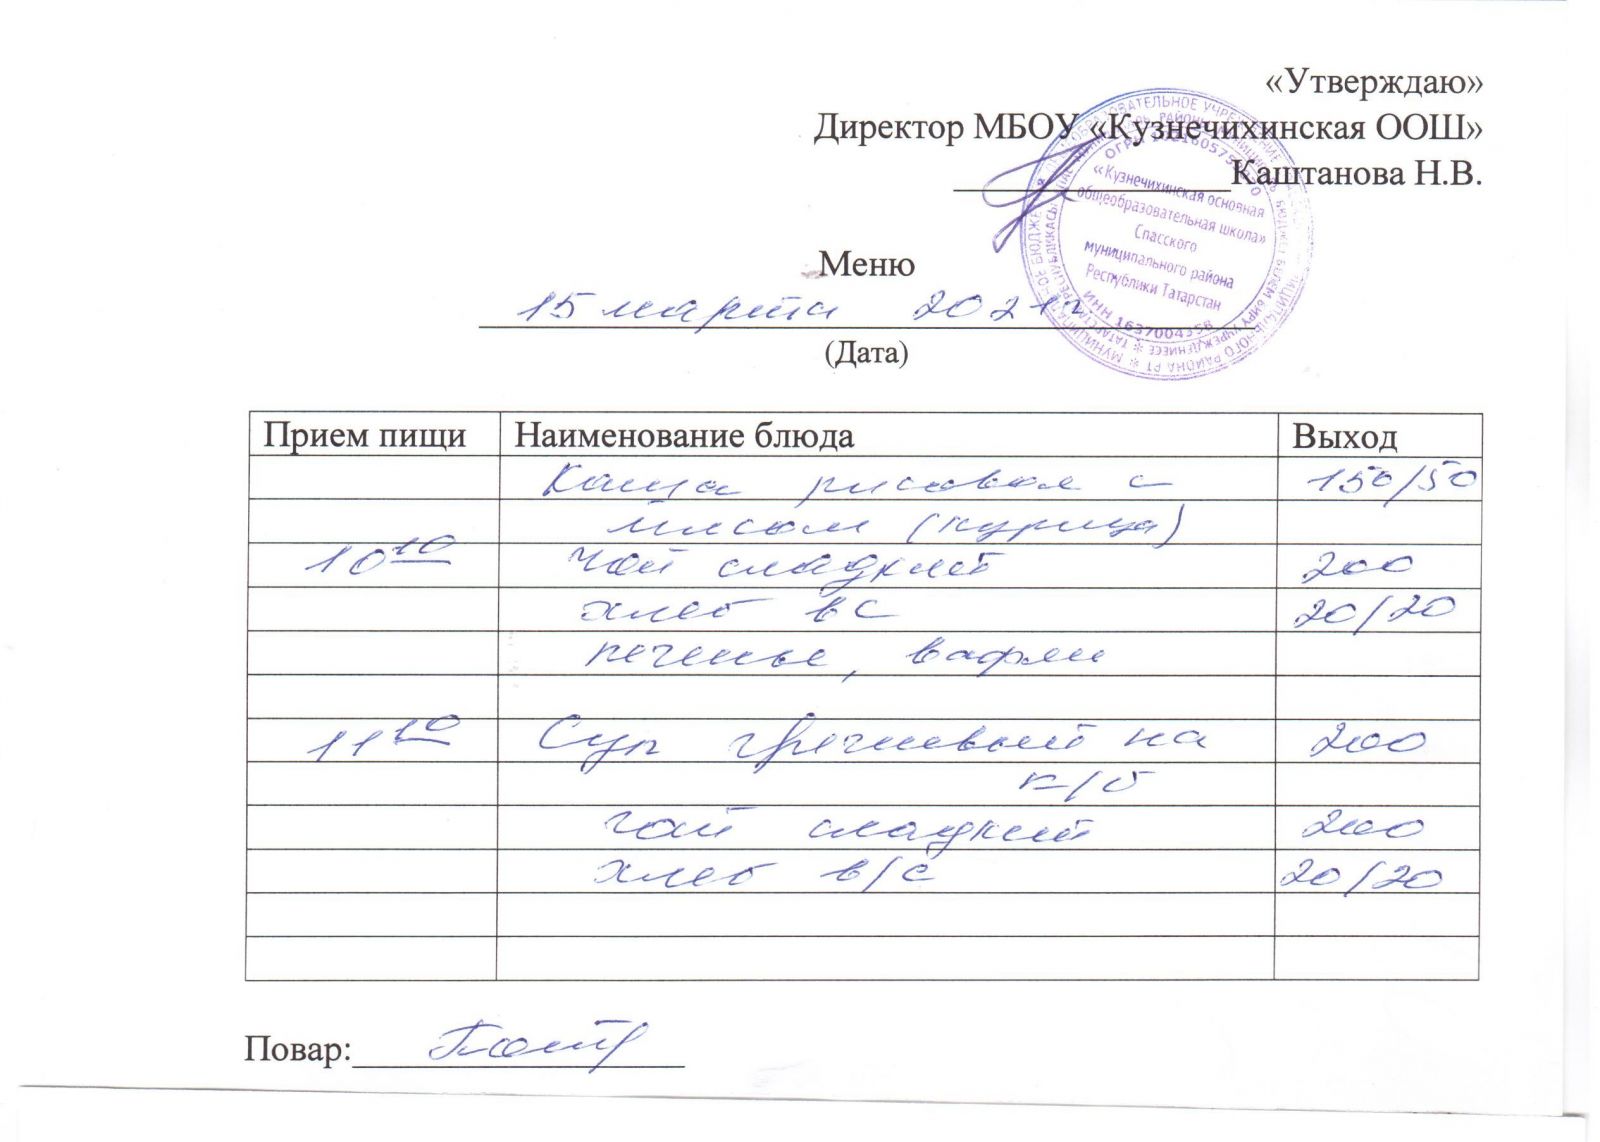 «Утверждаю»
Директор МБОУ «Кузнечихинская ООШ»
Каштанова Н.В.
«Кузнечихинская основная
общеобразовательная школа»
Спасского
муниципального района
Республики Татарстан
Меню
15 марта 2021г
(Дата)
Прием пищи Наименование блюда Выход
Каша рисовая с 150/50
мясом (курица)
10 10 чай сладкий 200
хлеб вс 20/20
печенье, вафли
11 10 Суп гречневый на 200
к/б
чай сладкий 200
хлеб в/с 20/20
Повар: